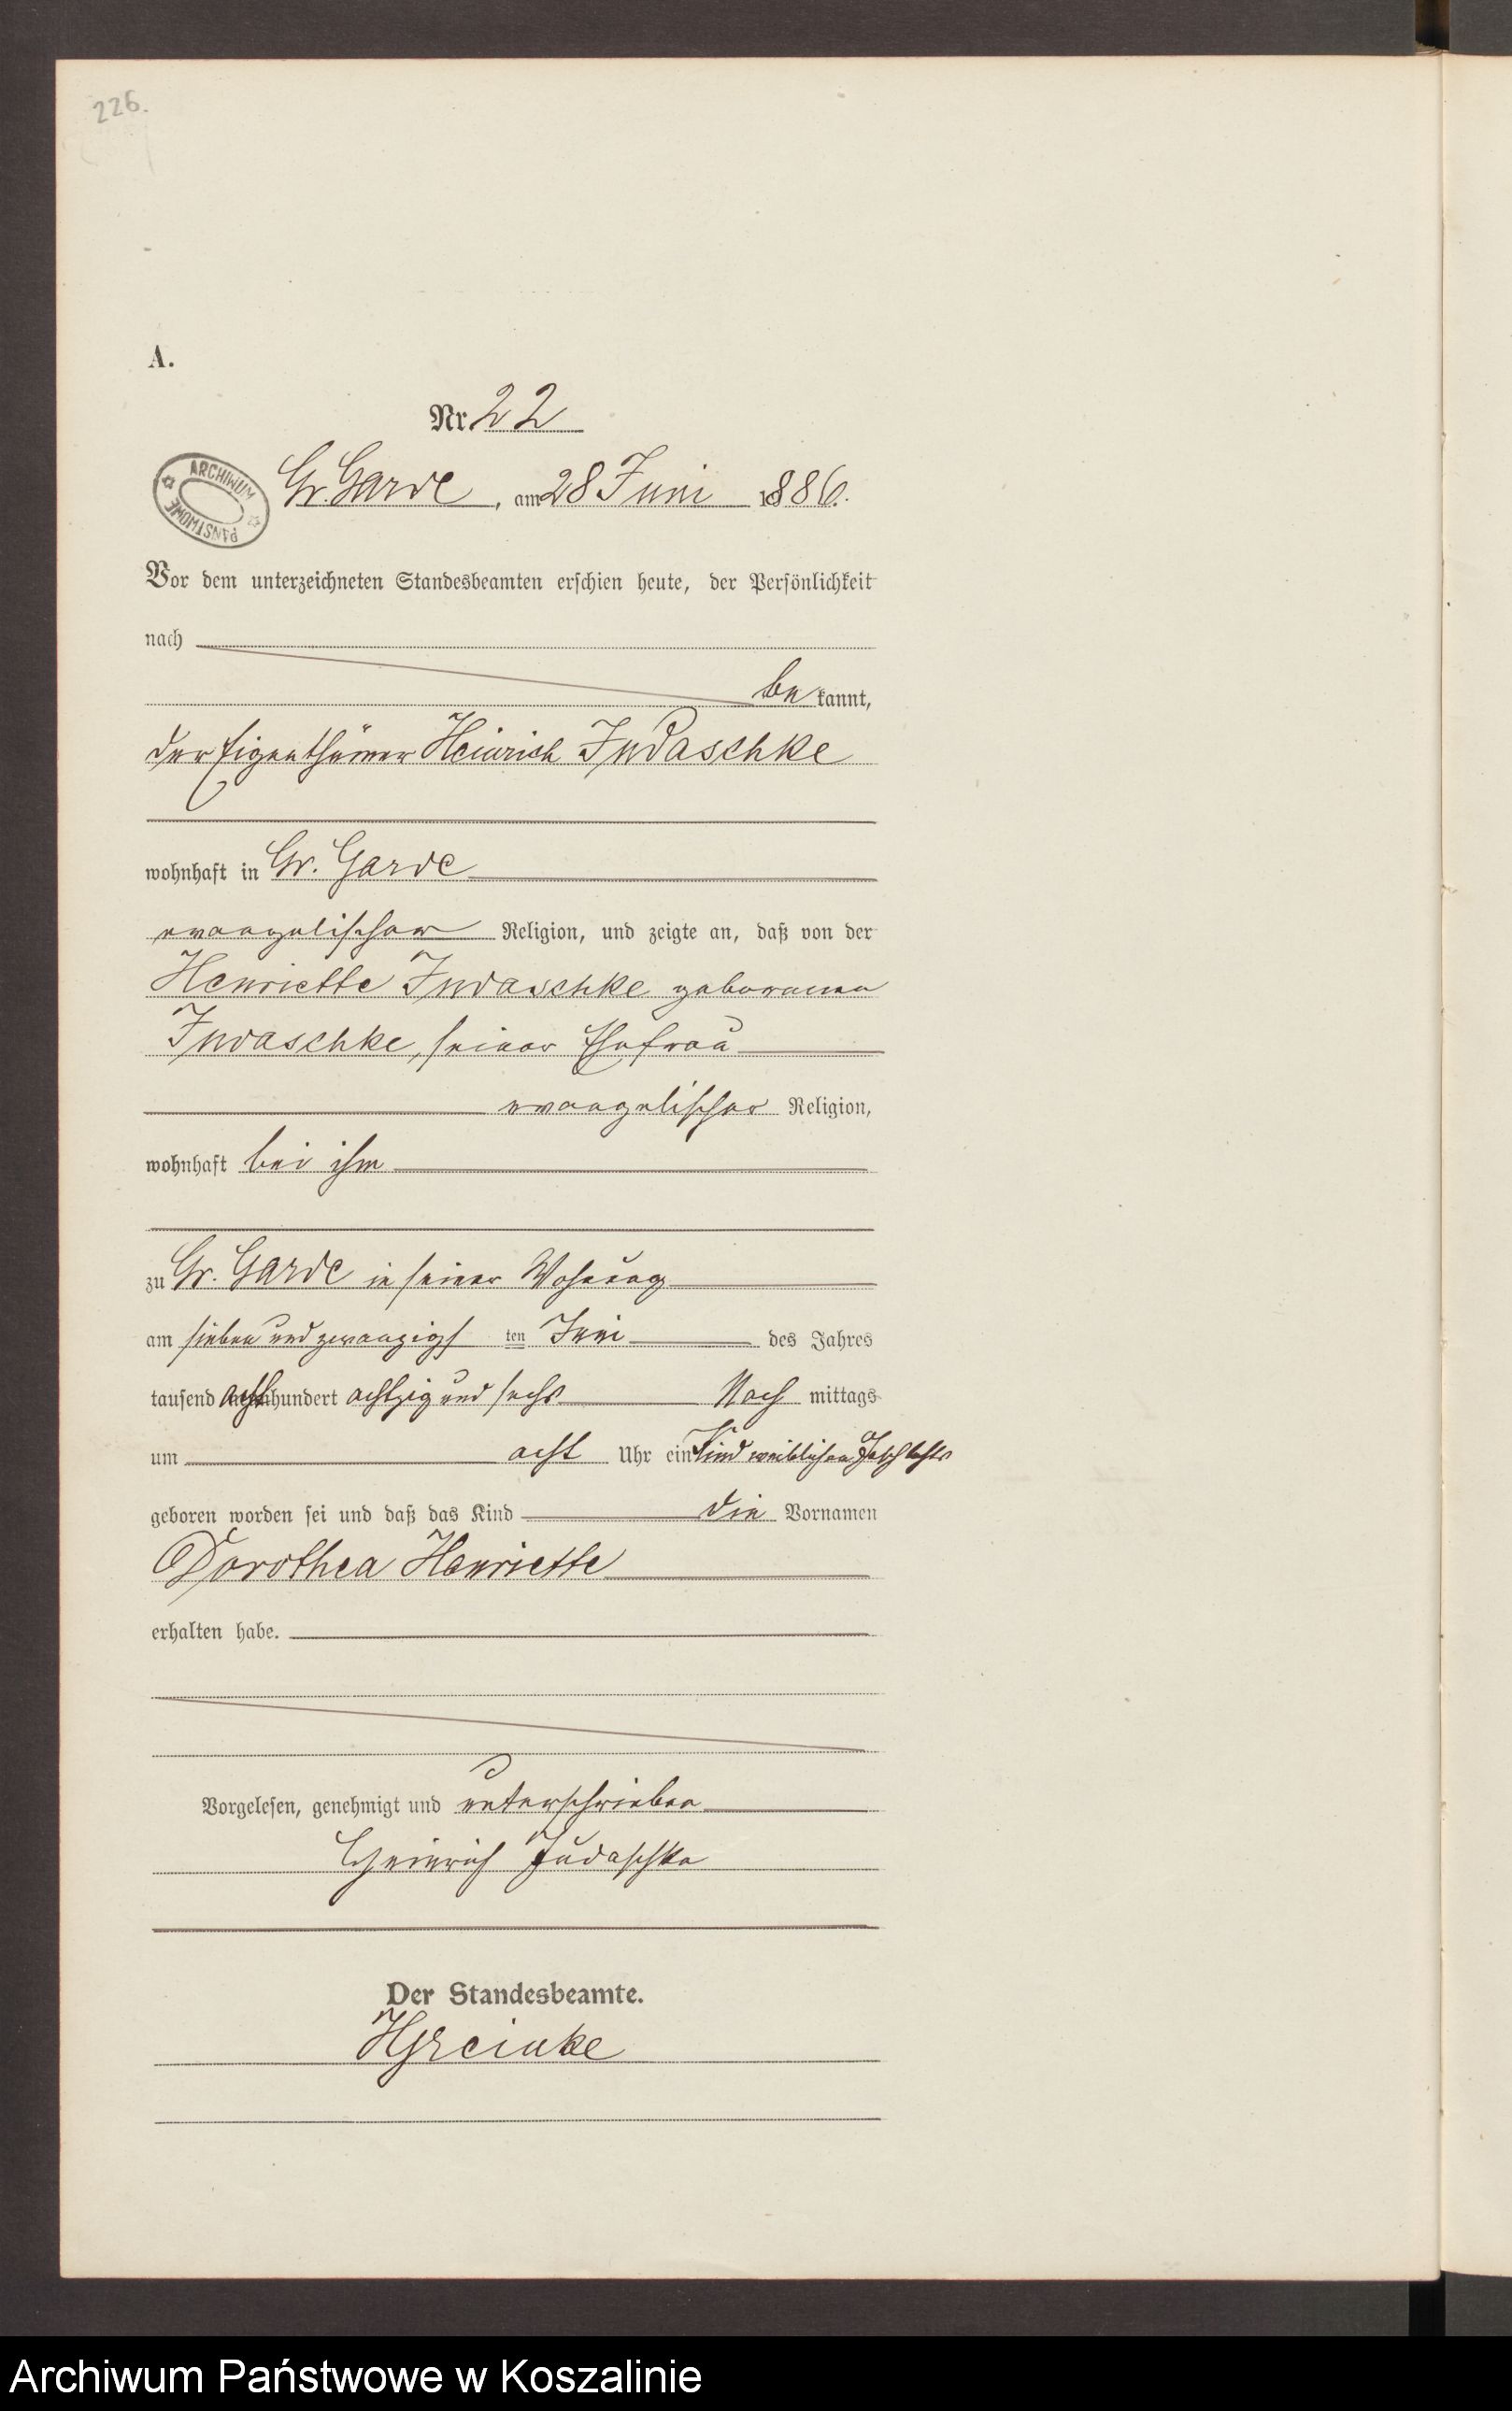 226.
A.
Nr. 22
ARCHIWUM PAŃSTWOWE
Gr. Garde, am 28 Juni 1886.
Vor dem unterzeichneten Standesbeamten erschien heute, der Persönlichkeit
nach
be kannt,
der Eigenthümer Heinrich Judaschke
wohnhaft in Gr. Garde
evangelischer Religion, und zeigte an, daß von der
Henriette Judaschke geborenen
Judaschke, seiner Ehefrau
evangelischer Religion,
wohnhaft bei ihm
zu Gr. Garde in seiner Wohnung
am sieben und zwanzigs ten Juni des Jahres
tausend acht hundert achtzig und sechs Nach mittags
um acht Uhr ein Kind weiblichen Geschlechts
geboren worden sei und daß das Kind die Vornamen
Dorothea Henriette
erhalten habe.
Vorgelesen, genehmigt und unterschrieben
Heinrich Judaschke
Der Standesbeamte.
Archiwum Państwowe w Koszalinie